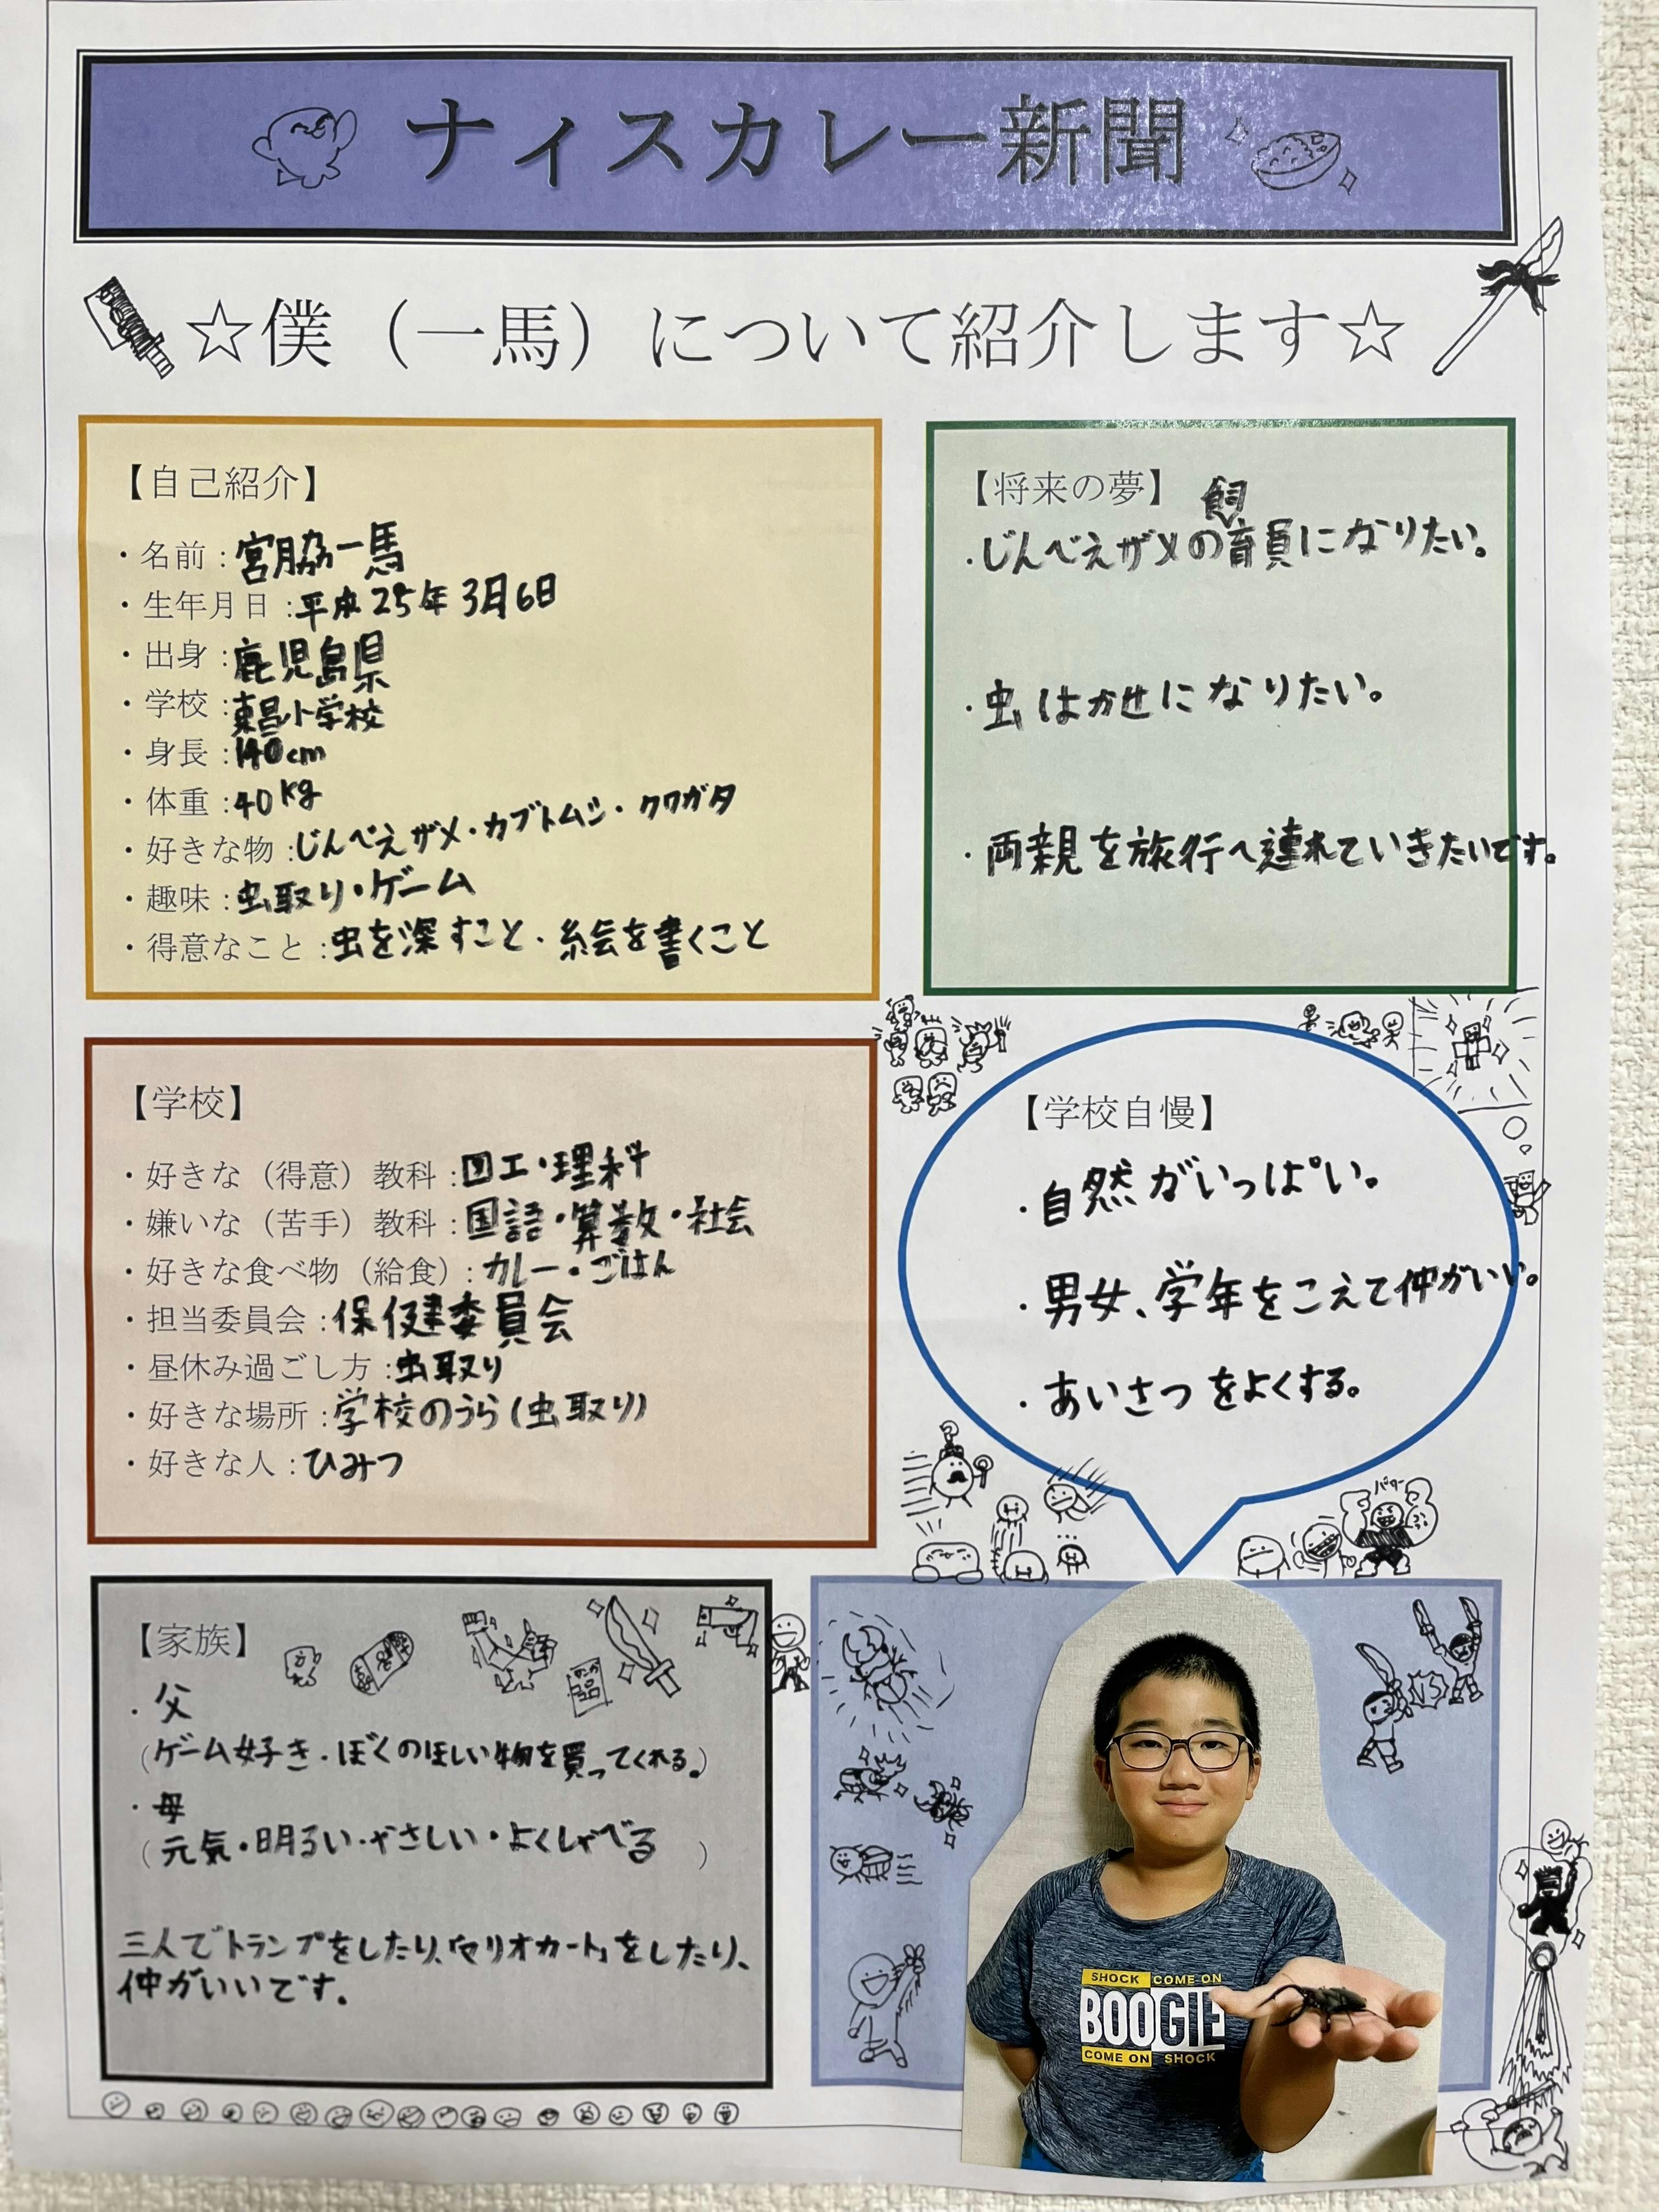 ナイスカレー新聞
☆僕（一馬）について紹介します☆
【自己紹介】
・名前：宮脇一馬
・生年月日：平成25年3月6日
・出身：鹿児島県
・学校：東昌小学校
・身長：140cm
・体重：40kg
・好きな物：じんべえザメ・カブトムシ・クワガタ
・趣味：虫取り・ゲーム
・得意なこと：虫を深すこと・絵を書くこと
【将来の夢】
・じんべえザメの飼育員になりたい。
・虫はかせになりたい。
・両親を旅行へ連れていきたいです。
【学校】
・好きな（得意）教科：図工・理科
・嫌いな（苦手）教科：国語・算数・社会
・好きな食べ物（給食）：カレー・ごはん
・担当委員会：保健委員会
・昼休み過ごし方：虫取り
・好きな場所：学校のうら(虫取り)
・好きな人：ひみつ
【学校自慢】
・自然がいっぱい。
・男女、学年をこえて仲がいい。
・あいさつをよくする。
【家族】
・父
（ゲーム好き・ぼくのほしい物を買ってくれる。）
・母
（元気・明るい・やさしい・よくしゃべる）
三人でトランプをしたり、「マリオカート」をしたり、
仲がいいです。
VS
SHOCK COME ON
BOOGIE
COME ON SHOCK